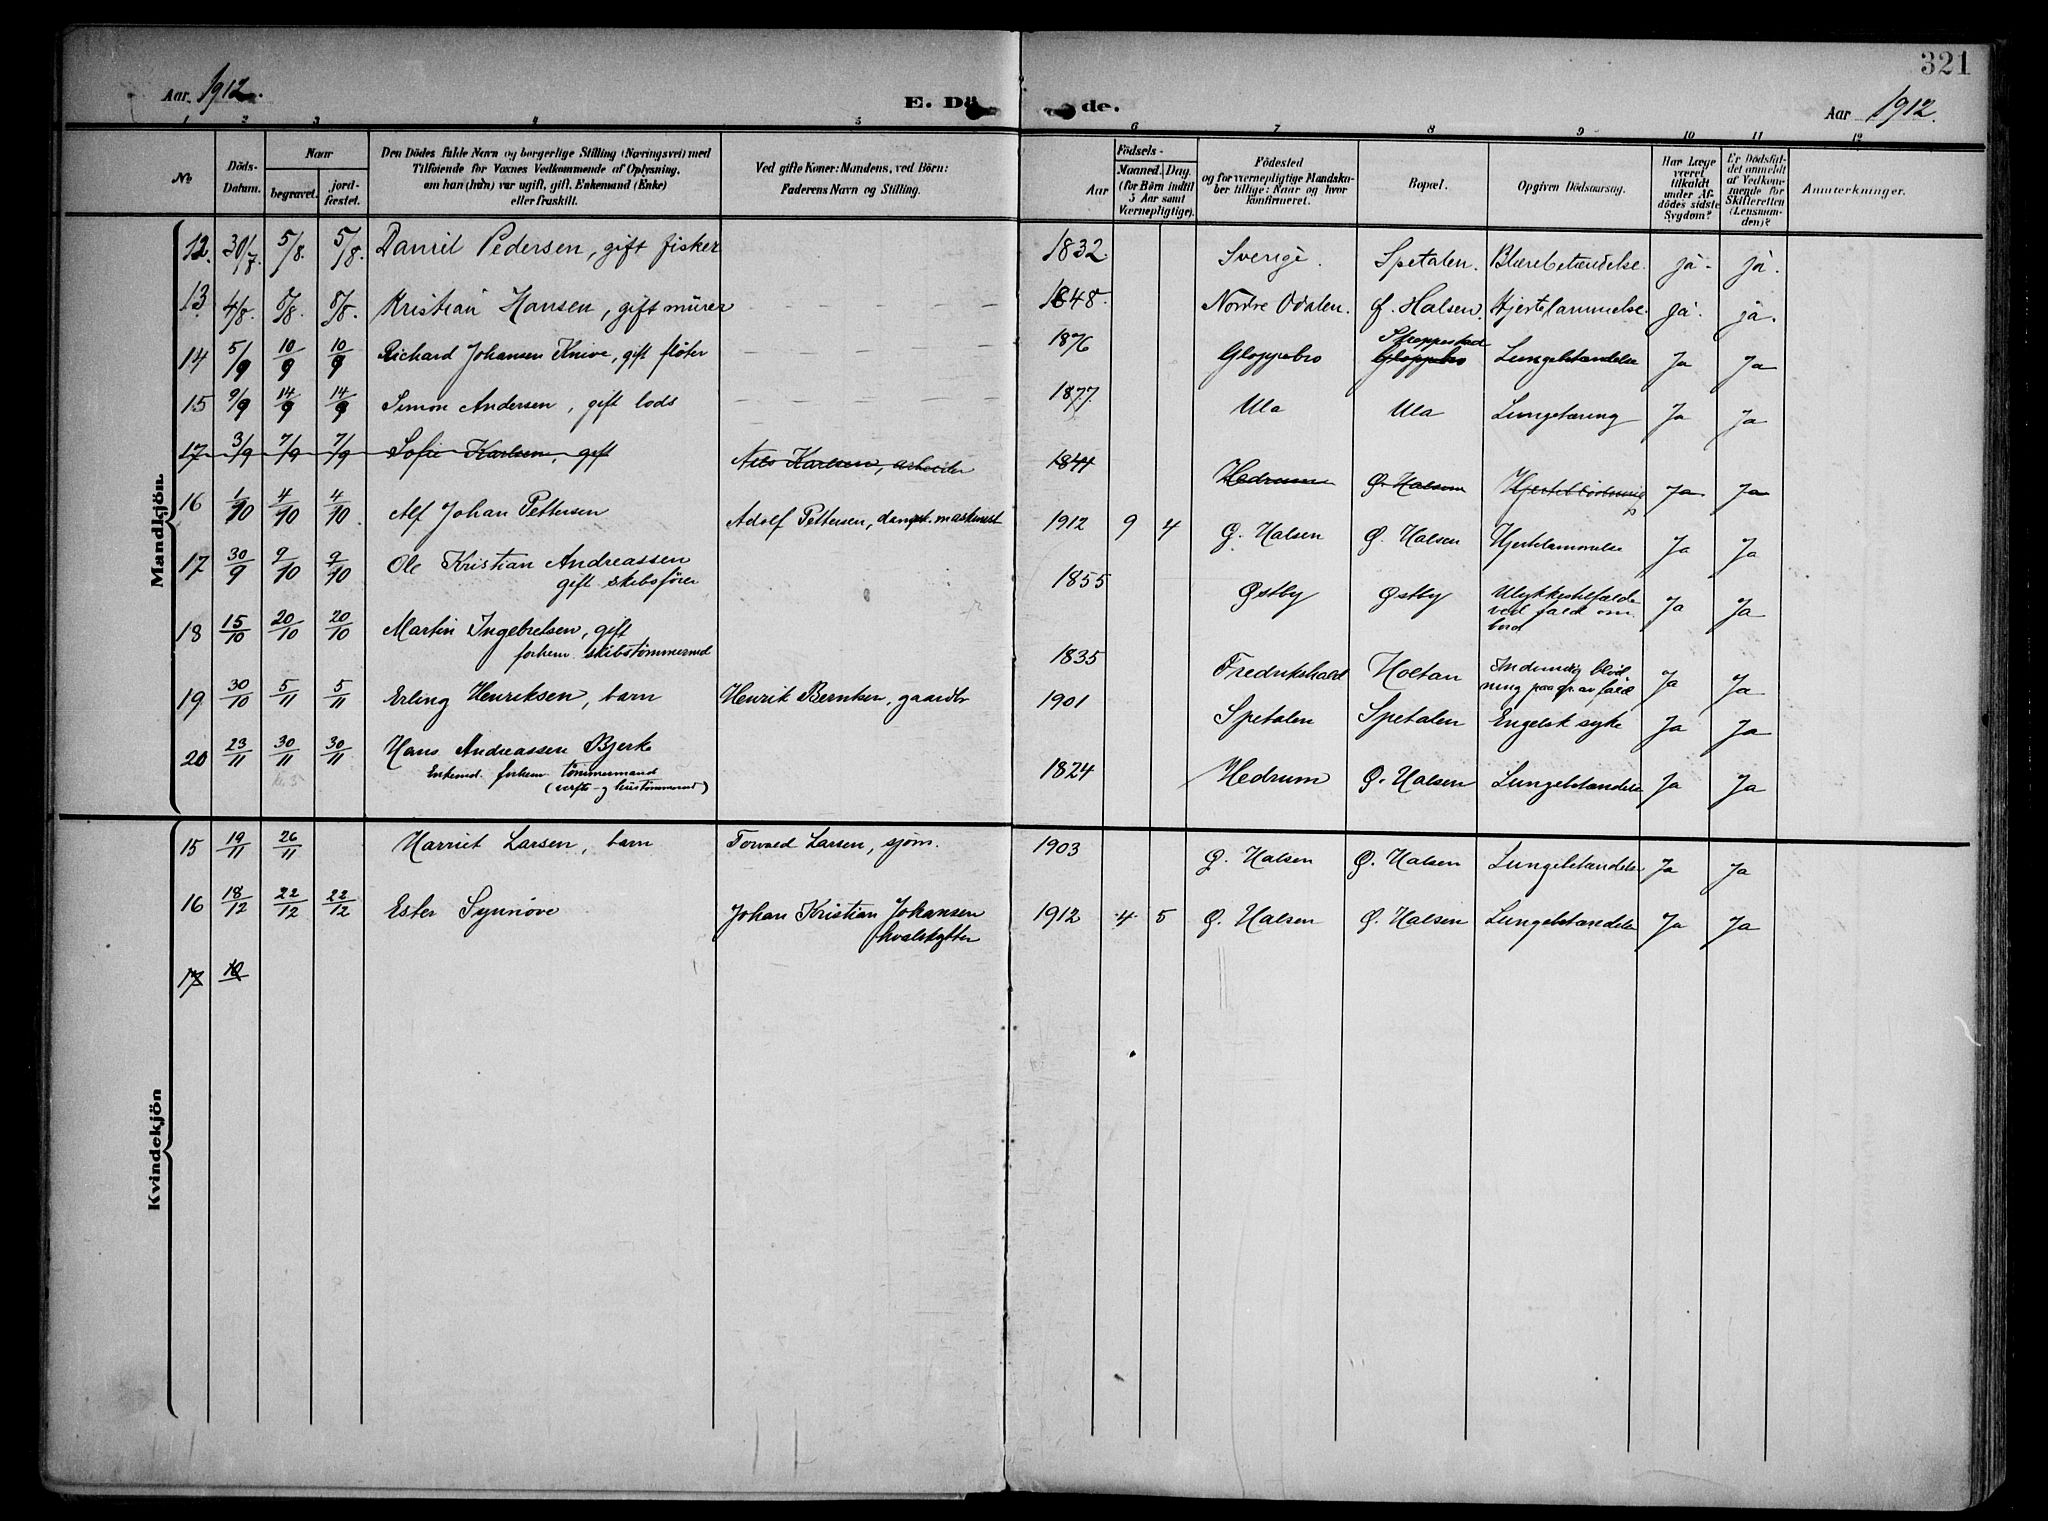 321
Aar 1912.
E. Dö de.
Aar 1912.
1 2 3 4 5 6 7 8 9 10 11 12
No
Döds-Datum.
Naar
begravet.
jord-fæstet.
Den Dödes fulde Navn og borgerlige Stilling (Næringsvei) med
Tilföiende for Voxnes Vedkommende af Oplysning,
om han (hun) var ugift, gift, Enkemand (Enke)
eller fraskilt.
Ved gifte Koner: Mandens, ved Börn:
Faderens Navn og Stilling.
Födsels-
Aar
Maaned. Dag.
(for Börn indtil
5 Aar samt
Værnepligtige).
Födested
og for værnepligtige Mandska-
ber tillige: Naar og hvor
konfirmeret.
Bopæl.
Opgiven Dödsaarsag.
Har Læge
været
tilkaldt
under Af-
dödes sidste
Sygdom?
Er Dödsfal-
det anmeldt
af Vedkom-
mende for
Skifteretten
(Lensman-
den)?
Anmerkninger.
Mandkjön.
12. 30/7. 5/8. 5/8. Daniel Pedersen, gift fisker 1832. Sverige. Spetalen. Blærebetændelse. ja. ja.
13. 4/8. 8/8. 8/8. Kristian Hansen, gift murer 1848. Nordre Odalen. Ø. Halsen. Hjertelammelse. ja. ja.
14 5/9 10/9 10/9 Richard Johansen Knive, gift fløter 1876 Gloppebro Gloppebro Lungebetændelse Ja Ja
15 9/9 14/9 14/9 Simon Andersen, gift lods 1877 Ula Ula Lungetæring Ja Ja
17 3/9 7/9 7/9 Sofie Karlsen, gift Nils Karlsen, arbeider 1844 Hedrum Ø. Halsen Ja Ja
16 1/10 4/10 4/10 Alf Johan Pettersen Adolf Pettersen, dampsk. maskinist 1912 9 4 Ø. Halsen Ø. Halsen Hjertelammelse Ja Ja
17 30/9 9/10 9/10 Ole Kristian Andreassen
gift skibsfører 1855 Østby Østby Ulykkestilfælde
ved fald om
bord Ja Ja
18 15/10 20/10 20/10 Martin Ingebretsen, gift
forhenv. skibstømmermd 1835 Fredrikshald Holtan Indvendig blød
ning paa gr. av fald Ja Ja
19 30/10 5/11 5/11 Erling Henriksen, barn Henrik Berntsen, gaardbr 1901 Spetalen Spetalen Engelsk syke Ja Ja
20 23/11 30/11 30/11 Hans Andreassen Bjerke
Enkemd. forhenv. tømmermand 1824 Hedrum Ø. Halsen Lungebetændelse Ja Ja
Kvindekjön
15 19/11 26/11 Harriet Larsen, barn Torvald Larsen, sjøm. 1903 Ø. Halsen Ø. Halsen Lungebetændelse Ja Ja
16 18/12 22/12 22/12 Ester Synnøve Johan Kristian Johansen
hvalskytter 1912 4 5 Ø. Halsen Ø. Halsen Lungebetændelse Ja Ja
17 10